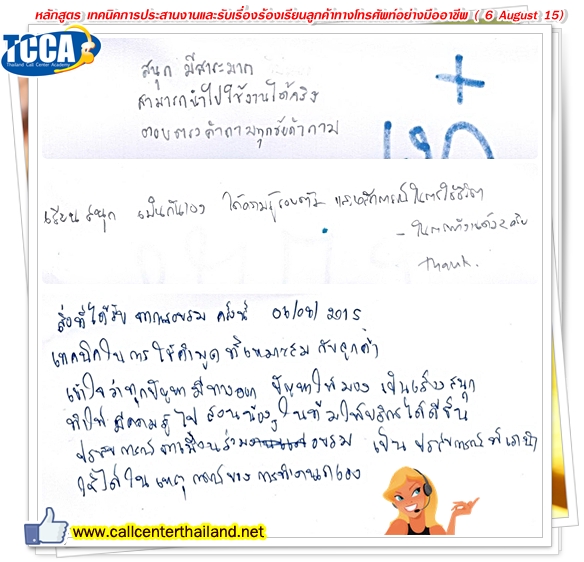 หลักสูตร เทคนิคการประสานงานและรับเรื่องร้องเรียนลูกค้าทางโทรศัพท์อย่างมืออาชีพ ( 6 August 15)
TCCA
Thailand Call Center Academy
สนุก มีสาระมาก
สามารถนำไปใช้งานได้จริง
ตอบตรงคำถามทุกข้อคำถาม
เรียนสนุก เป็นกันเอง ได้ความรู้รอบตัว และหลักการณ์ในการใช้ชีวิต
- ในการทำงานด้วยครับ
Thank.
สิ่งที่ได้รับ จากการอบรม ครั้งนี้ 06/08/2015
เทคนิคใน การใช้คำพูด ที่เหมาะสม กับลูกค้า
เข้าใจว่าทุกปัญหา มีทางออก ปัญหาให้มอง เป็นเรื่องสนุก
ทำให้ มีความรู้ ไป สอนน้องๆ ในทีม ให้บริการได้ดีขึ้น
ประสบการณ์ จากเพื่อนร่วม อบรม เป็น ประสบการณ์ที่
ใช้ได้ใน เหตุการณ์ของ การทำงาน
www.callcenterthailand.net